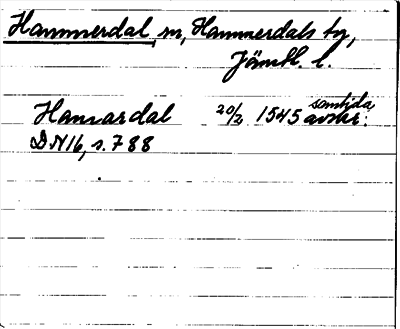 Hammerdal, sn, Hammerdals tg,
Jämtl. l.
Hamardal 20/3 1545 samtida avskr.
DN16, s. 788